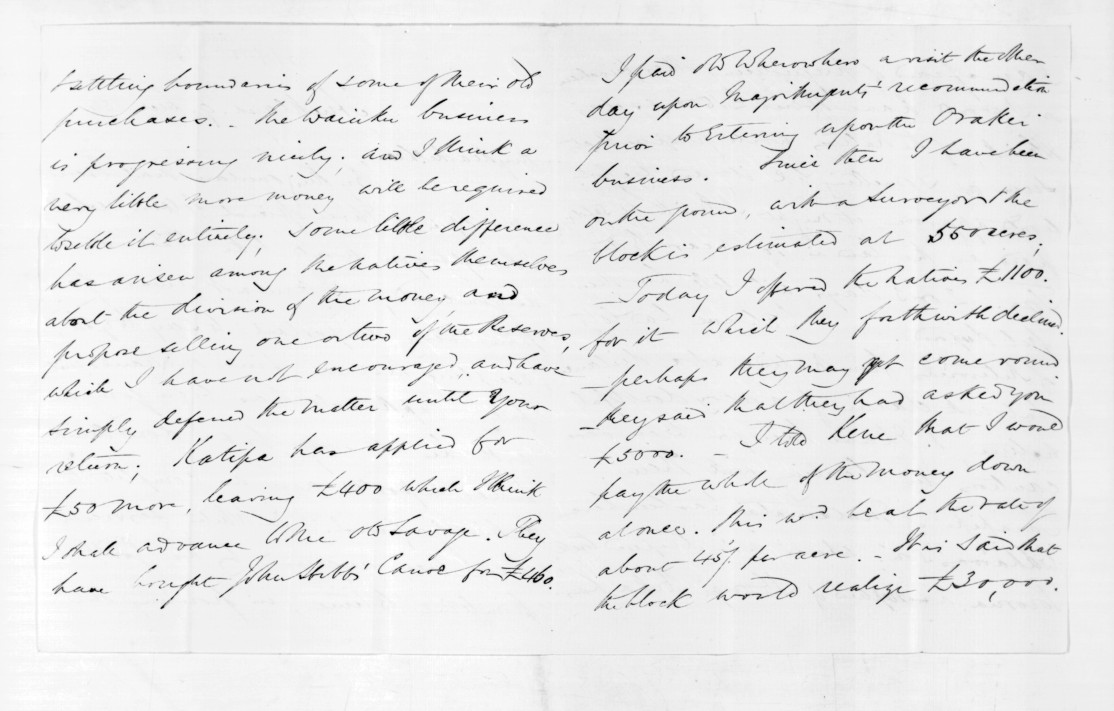 settling boundaries of some of their old
purchases. - The Waiuku business
is progressing nicely; and I think a
very little more money will be required
to settle it entirely; some little difference
has arisen among the natives themselves
about the division of the money, and
propose selling one or two of the Reserves,
which I have not encouraged, and have
simply deferred the matter until your
return; Katipa has applied for
£50 more, leaving £400 which I think
I shall advance to the old Savage. They
have bought John Stubbs' Canoe for £460.
I paid old Wherowhero a visit the other
day upon Major Nugent's recommendation
prior to Entering upon the Orakei
business. Since then I have been
on the ground, with a Surveyor & the
block is estimated at 500 acres;
- Today I offered the natives £1100.
for it which they forthwith declined.
- perhaps they may yet come round
- they said that they had asked you
£5000. - I told Kene that I would
pay the whole of the money down
at once. This wd. be at the rate of
about 45/. per acre. - It is said that
the block would realize £30,000.